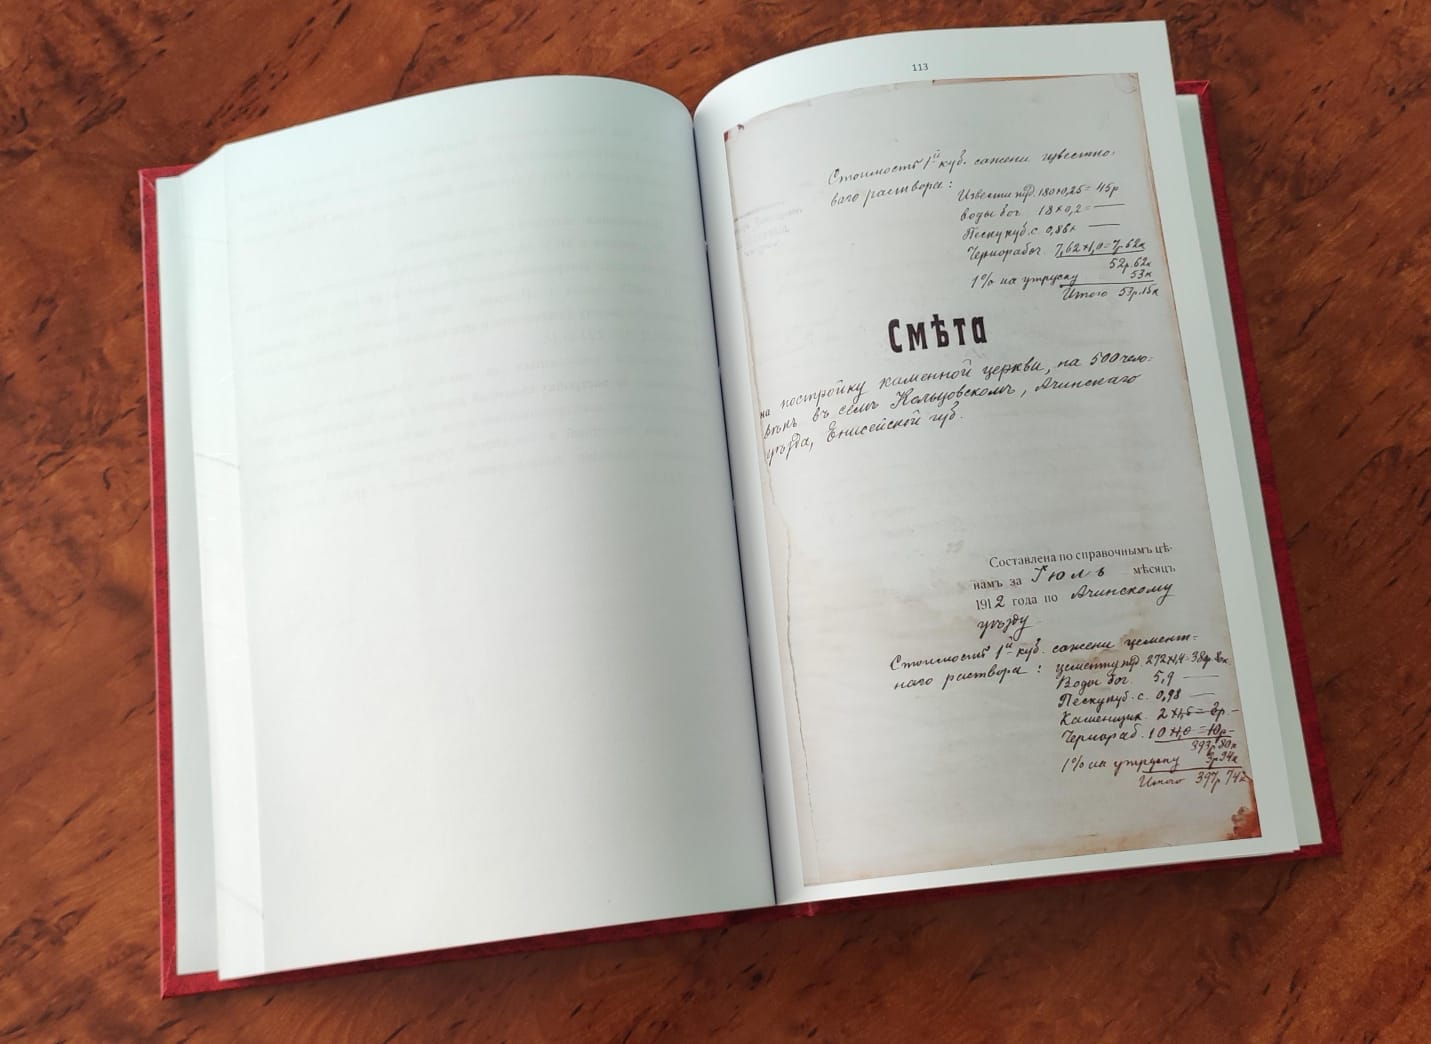 113
Стоимость 1й куб. сажени известко-
ваго раствора:
Извести пд. 180×0,25= 45р
воды боч. 18×0,2= —
Песку куб. с. 0,86к —
Чернорабоч. 7,62×1,0=7р.62к
52р.62к
1% на утруску 53к
Итого 53р.15к
Смѣта
на постройку каменной церкви, на 500 чело-
вѣкъ въ селѣ Кольцовскомъ, Ачинскаго
уѣзда, Енисейской губ.
Составлена по справочнымъ цѣ-
намъ за Іюль мѣсяцъ
1912 года по Ачинскому
уѣзду
Стоимость 1й куб. сажени цемент-
наго раствора: цементу пд. 272×1,4=
Воды боч. 5,9 —
Песку куб. с. 0,98 —
Каменщик. 2×1,5= 3р. —
Чернораб. 10×1,0=10р —
393р.80к
1% на утруску 3р.94к
Итого 397р 74к